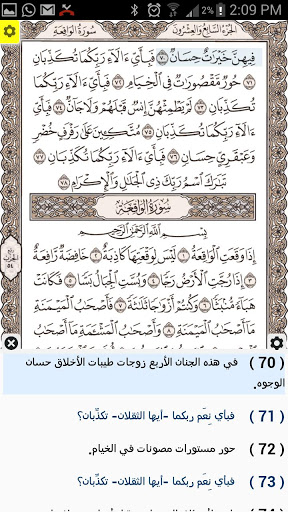 2:09 PM
الجزء السابع والعشرون
سورة الواقعة
فِيهِنَّ خَيْرَاتٌ حِسَانٌ ٧٠ فَبِأَيِّ آلَاءِ رَبِّكُمَا تُكَذِّبَانِ
٧١ حُورٌ مَقْصُورَاتٌ فِي الْخِيَامِ ٧٢ فَبِأَيِّ آلَاءِ رَبِّكُمَا
تُكَذِّبَانِ ٧٣ لَمْ يَطْمِثْهُنَّ إِنْسٌ قَبْلَهُمْ وَلَا جَانٌّ ٧٤ فَبِأَيِّ
آلَاءِ رَبِّكُمَا تُكَذِّبَانِ ٧٥ مُتَّكِئِينَ عَلَى رَفْرَفٍ خُضْرٍ
وَعَبْقَرِيٍّ حِسَانٍ ٧٦ فَبِأَيِّ آلَاءِ رَبِّكُمَا تُكَذِّبَانِ ٧٧
تَبَارَكَ اسْمُ رَبِّكَ ذِي الْجَلَالِ وَالْإِكْرَامِ ٧٨
سورة الواقعة
بِسْمِ اللَّهِ الرَّحْمَٰنِ الرَّحِيمِ
إِذَا وَقَعَتِ الْوَاقِعَةُ ١ لَيْسَ لِوَقْعَتِهَا كَاذِبَةٌ ٢ خَافِضَةٌ رَافِعَةٌ
٣ إِذَا رُجَّتِ الْأَرْضُ رَجًّا ٤ وَبُسَّتِ الْجِبَالُ بَسًّا ٥ فَكَانَتْ
هَبَاءً مُنْبَثًّا ٦ وَكُنْتُمْ أَزْوَاجًا ثَلَاثَةً ٧ فَأَصْحَابُ الْمَيْمَنَةِ
مَا أَصْحَابُ الْمَيْمَنَةِ ٨ وَأَصْحَابُ الْمَشْأَمَةِ مَا أَصْحَابُ
(70) في هذه الجنان الأربع زوجات طيبات الأخلاق حسان
الوجوه.
(71) فبأي نِعَم ربكما -أيها الثقلان- تكذِّبان؟
(72) حور مستورات مصونات في الخيام.
(73) فبأي نِعَم ربكما -أيها الثقلان- تكذِّبان؟